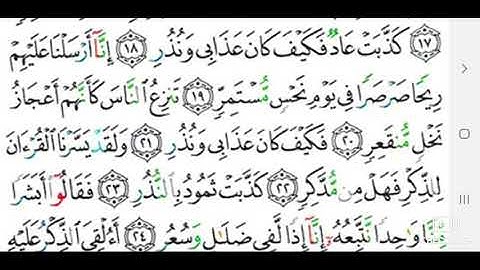 ﴿١٧﴾ كَذَّبَتْ عَادٌ فَكَيْفَ كَانَ عَذَابِى وَنُذُرِ ﴿١٨﴾ إِنَّآ أَرْسَلْنَا عَلَيْهِمْ
رِيحًا صَرْصَرًا فِى يَوْمِ نَحْسٍ مُّسْتَمِرٍّ ﴿١٩﴾ تَنزِعُ ٱلنَّاسَ كَأَنَّهُمْ أَعْجَازُ
نَخْلٍ مُّنقَعِرٍ ﴿٢٠﴾ فَكَيْفَ كَانَ عَذَابِى وَنُذُرِ ﴿٢١﴾ وَلَقَدْ يَسَّرْنَا ٱلْقُرْءَانَ
لِلذِّكْرِ فَهَلْ مِن مُّدَّكِرٍ ﴿٢٢﴾ كَذَّبَتْ ثَمُودُ بِٱلنُّذُرِ ﴿٢٣﴾ فَقَالُوٓا۟ أَبَشَرًا
مِّنَّا وَٰحِدًا نَّتَّبِعُهُۥٓ إِنَّآ إِذًا لَّفِى ضَلَٰلٍ وَسُعُرٍ ﴿٢٤﴾ أَءُلْقِىَ ٱلذِّكْرُ عَلَيْهِ